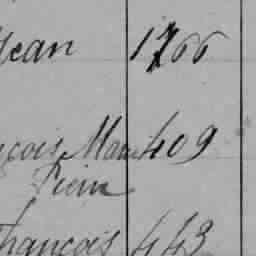 Jean 1766
nçois Marie 409
Pierre
François 443